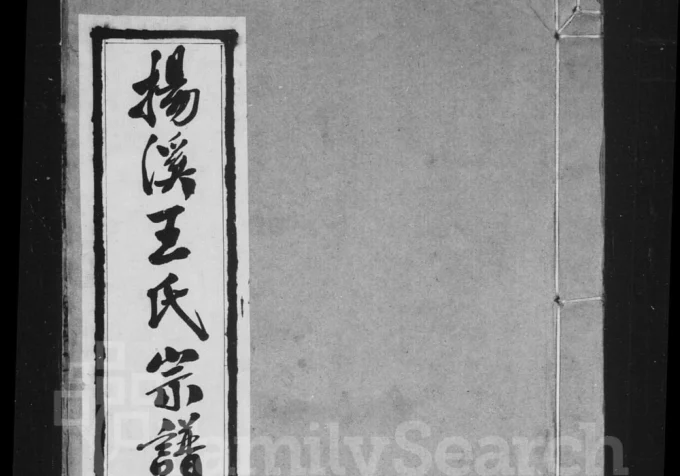 揚溪王氏宗譜
FamilySearch